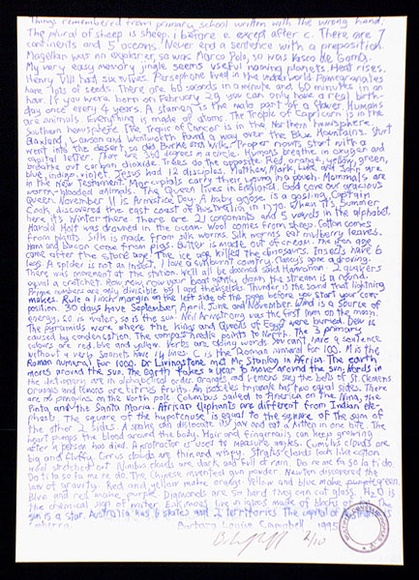 Things remembered from primary school written with the wrong hand.
The plural of sheep is sheep. i before e except after c. There are 7
continents and 5 oceans. Never end a sentence with a preposition.
Magellan was an explorer, so was Marco Polo, so was Vasco de Gama.
My very easy memory jingle seems useful naming planets. Heat rises.
Henry VIII had six wives. Persephone lived in the underworld. Pomegranates
have lots of seeds. There are 60 seconds in a minute and 60 minutes in an
hour. If you were born on February 29, you can only have a real birth-
day once every 4 years. A stamen is the male part of a flower. Humans
are animals. Everything is made of atoms. The Tropic of Capricorn is in the
Southern hemisphere. The Tropic of Cancer is in the Northern hemisphere.
Blaxland, Lawson and Wentworth found a way over the Blue Mountains. Sturt
went into the desert, so did Burke and Wills. Proper nouns start with a
capital letter. There are 360 degrees in a circle. Humans breathe in oxygen and
breathe out carbon dioxide. Trees do the opposite. Red, orange, yellow, green,
blue, indigo, violet. Jesus had 12 disciples. Matthew, Mark, Luke and John are
in the New Testament. Marsupials carry their young in a pouch. Mammals are
warm blooded animals. The Queen lives in England. God save our gracious
Queen. November 11 is Armistice Day. A baby goose is a gosling. Captain
Cook discovered the east coast of Australia in 1770. When it's Summer
here it's winter there. There are 21 consonants and 5 vowels in the alphabet.
Harold Holt was drowned in the ocean. Wool comes from sheep. Cotton comes
from plants. Silk is made from silk worms. Silk worms eat mulberry leaves.
Ham and bacon come from pigs. Butter is made out of cream. The iron age
came after the stone age. The ice age killed the dinosaurs. Insects have 6
legs. A spider is not an insect. I love a sunburnt country.
There was movement at the station. We'll all be doomed said Hanrahan. 2 quavers
equal a crotchet. Row row row your boat gently down the stream is a round.
Prime numbers are only divisible by 1 and themselves. Thunder is the sound that lightning
makes. Rule a 1 inch margin on the left side of the page before you start your com-
position. 30 days have September, April, June and November. Wind is a source of
energy, so is water, so is the sun. Neil Armstrong was the first man on the moon.
The pyramids were where the Kings and Queens of Egypt were buried. Dew is
caused by condensation. The compass needle points to North. The 3 primary
colours are red, blue and yellow. Verbs are doing words. You can't have a sentence
without a verb. Sonnets have 14 lines. C is the Roman numeral for 100. M is the
Roman numeral for 1000. Dr Livingstone met Mr Stanley in Africa. The earth
moves around the sun. The Earth takes a year to move around the sun. Words in
the dictionary are in alphabetical order. Oranges and lemons say the bells of St. Clemens
Oranges and lemons are citrus fruits. An isosceles triangle has two equal sides. There
are no penguins on the North pole. Columbus sailed to America on the Nina, the
Pinta and the Santa Maria. African elephants are different from Indian ele-
phants. The square of the hypotenuse is equal to the square of the sum of
the other 2 sides. A snake can dislocate its jaw and eat a kitten in one bite. The
heart pumps the blood around the body. Hair and fingernails can keep growing
after a person has died. A protractor is used to measure angles. Cumulus clouds are
big and fluffy. Cirrus clouds are thin and wispy. Stratus clouds look like cotton
wool stretched out. Nimbus clouds are dark and full of rain. Do re me fa so la ti do.
Do ti la so fa me re do. The Chinese invented gun powder. Newton discovered the
law of gravity. Red and yellow make orange. Yellow and blue make green.
Blue and red make purple. Diamonds are so hard they can cut glass. H2O is
the chemical sign of water. Eskimoes live in igloos made of blocks of ice. The
sun is a star. Australia has 6 states and 2 territories. The capital of Australia is
Canberra. Barbara Louise Campbell 1995
2/10